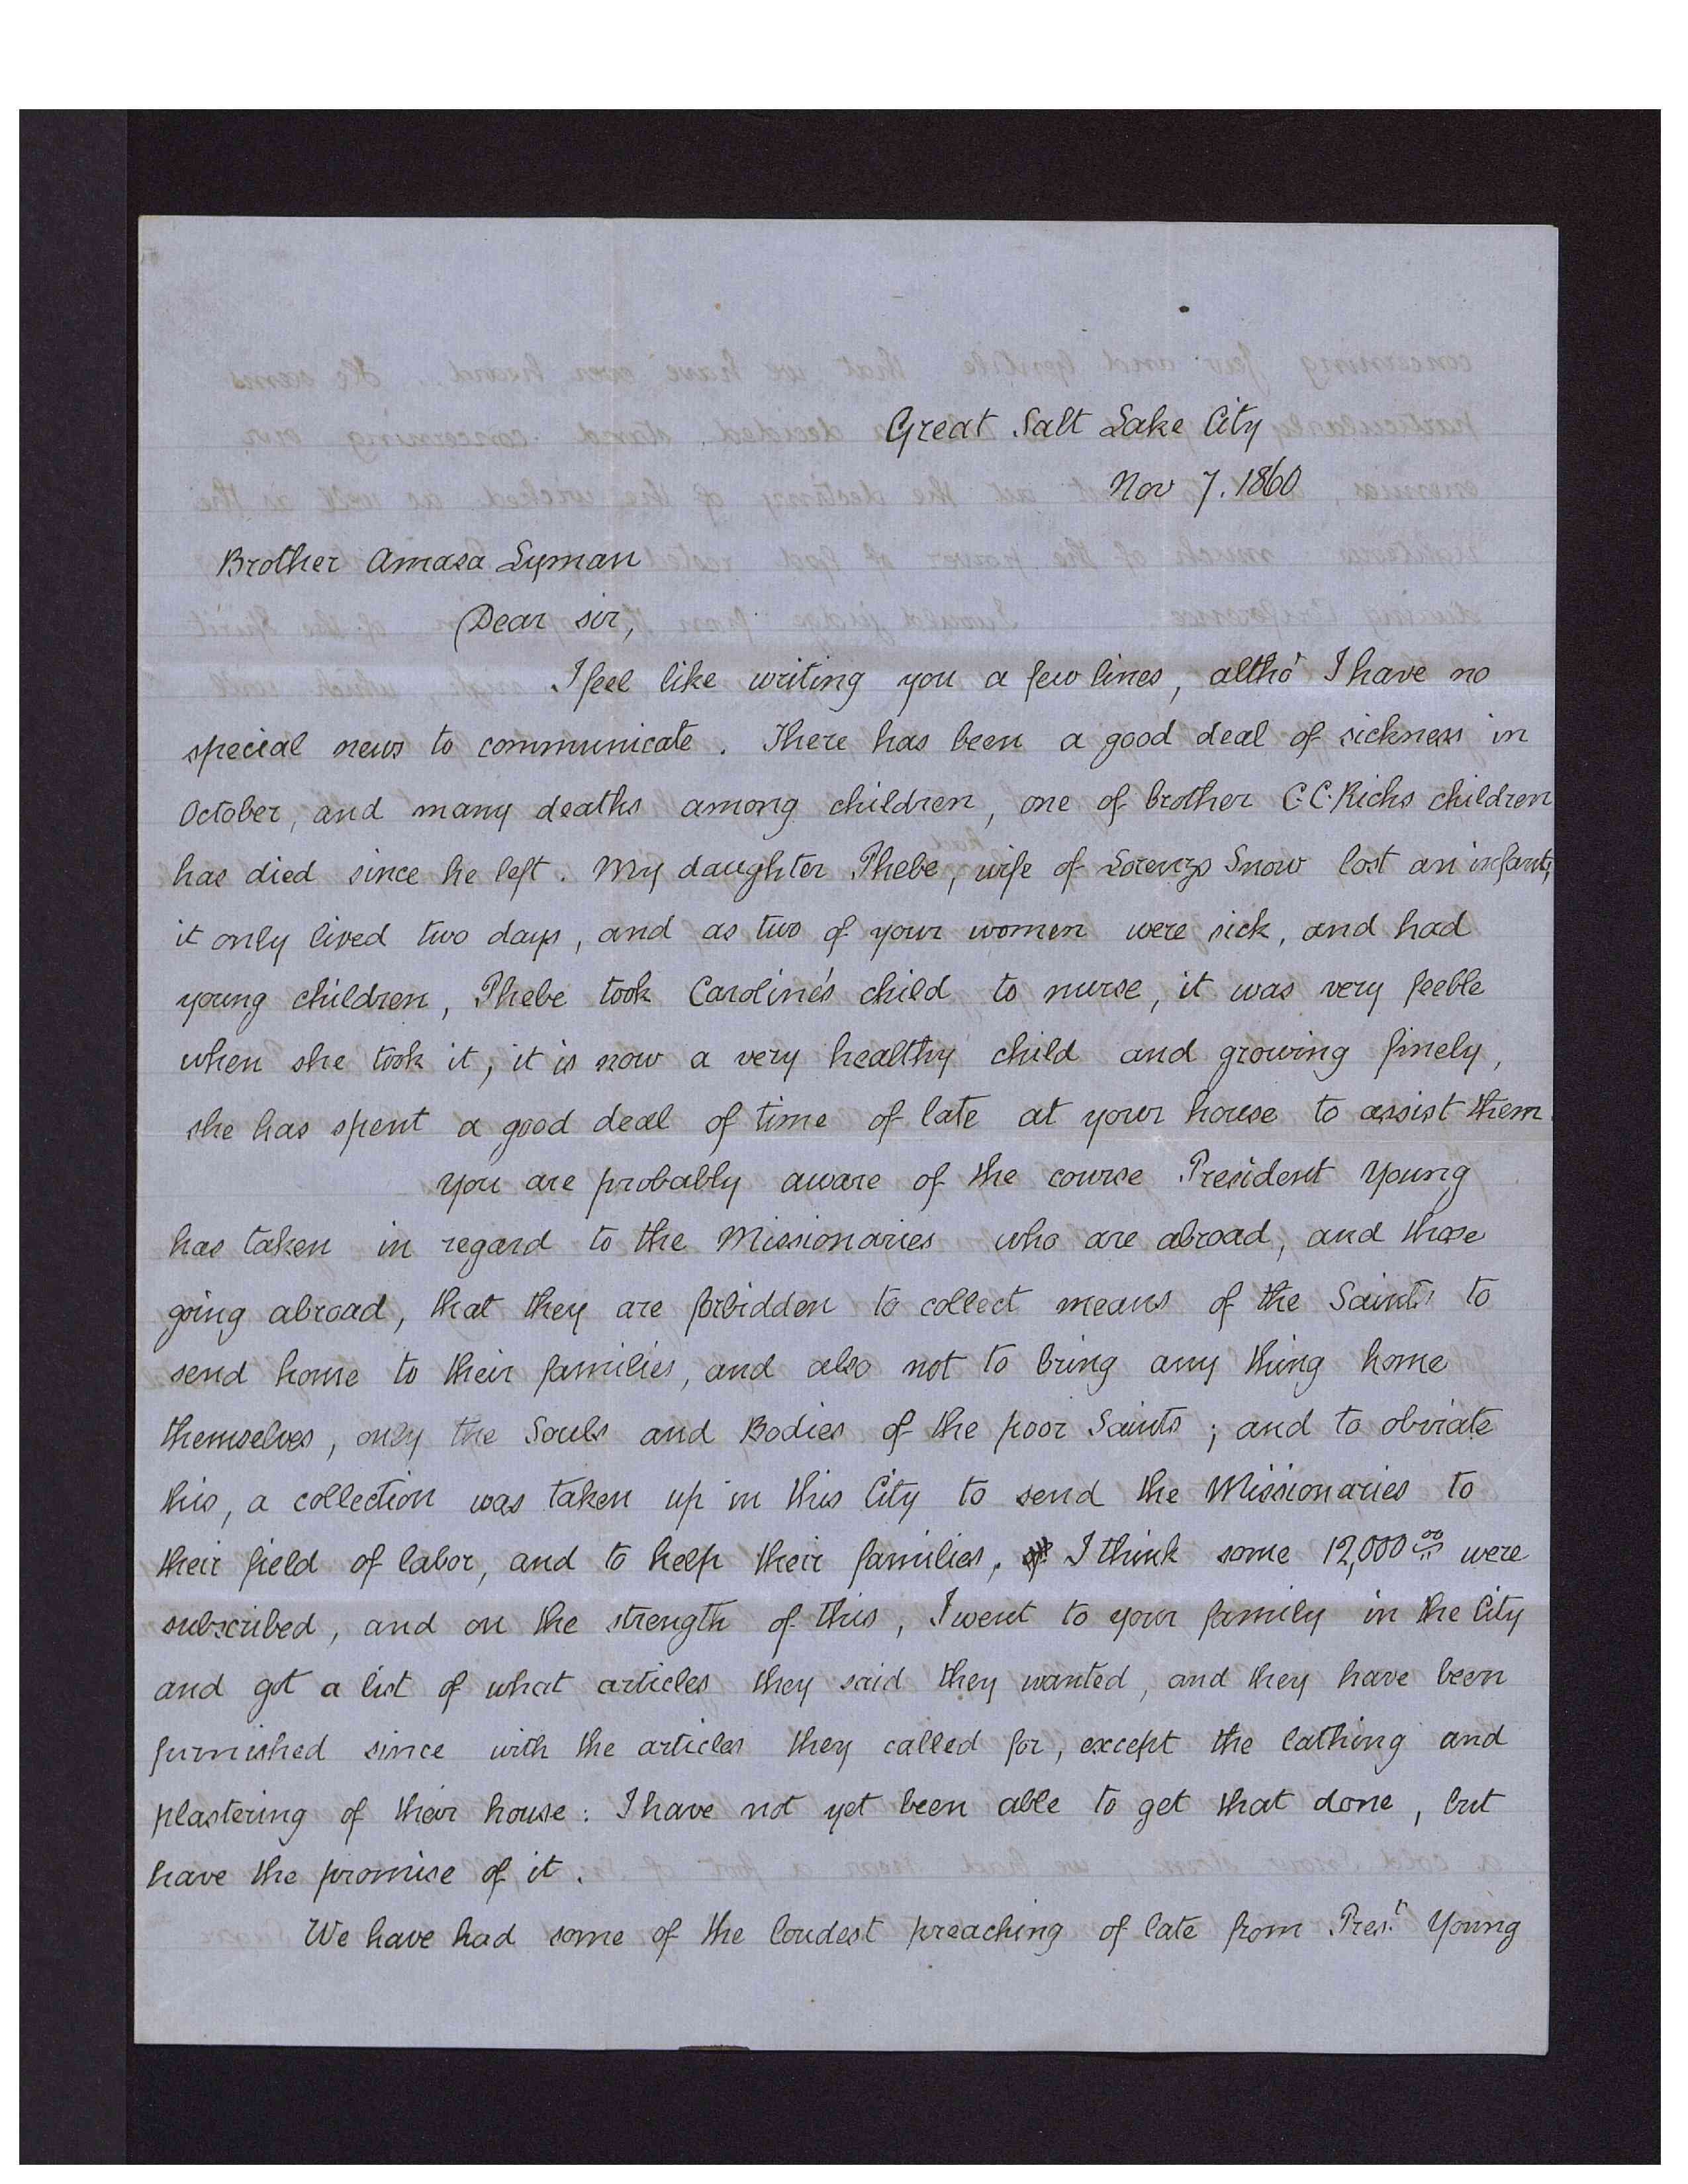 Great Salt Lake City
Nov 7. 1860
Brother Amasa Lyman
Dear sir,
I feel like writing you a few lines, altho' I have no
special news to communicate. There has been a good deal of sickness in
October, and many deaths among children, one of brother C.C. Richs children
has died since he left. My daughter Phebe, wife of Lorenzo Snow lost an infant,
it only lived two days, and as two of your women were sick, and had
young children, Phebe took Caroline's child to nurse, it was very feeble
when she took it, it is now a very healthy child and growing finely,
she has spent a good deal of time of late at your house to assist them.
You are probably aware of the course President Young
has taken in regard to the Missionaries who are abroad, and those
going abroad, that they are forbidden to collect means of the Saints to
send home to their families, and also not to bring any thing home
themselves, only the Souls and Bodies of the poor Saints; and to obviate
this, a collection was taken up in this City to send the Missionaries to
their field of labor, and to help their families. I think some 12,000 00 were
subscribed, and on the strength of this, I went to your family in the City
and got a list of what articles they said they wanted, and they have been
furnished since with the articles they called for, except the lathing and
plastering of their house: I have not yet been able to get that done, but
have the promise of it.
We have had some of the loudest preaching of late from Prest. Young